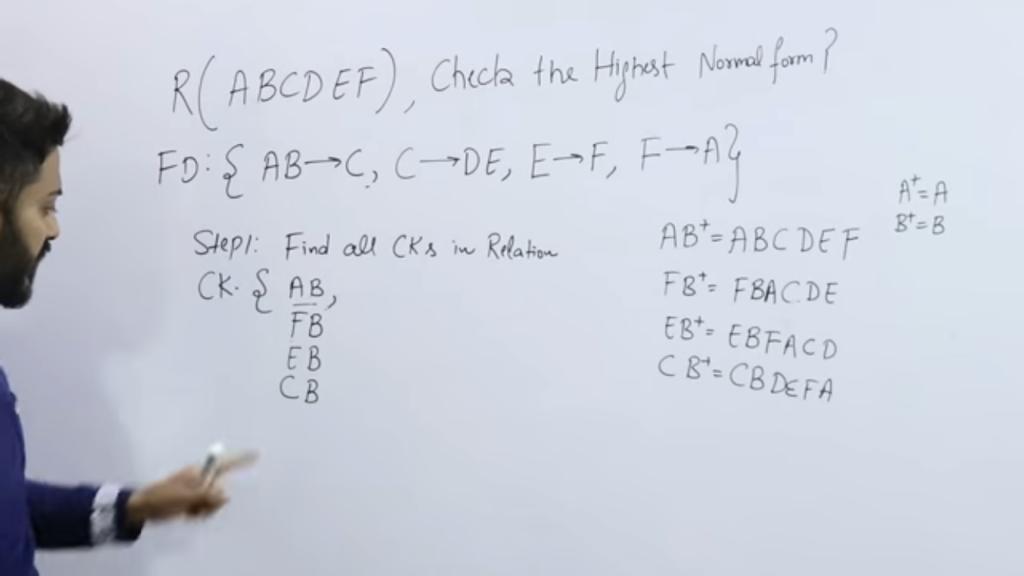 R(ABCDEF), Check the Highest Normal form?
FD: { AB→C, C→DE, E→F, F→A}
Step1: Find all CKs in Relation
CK. { AB,
FB
EB
CB
AB⁺=ABCDEF
FB⁺= FBACDE
EB⁺= EBFACD
CB⁺= CBDEFA
A⁺=A
B⁺=B